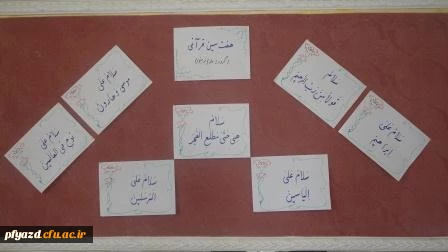 هفت سین قرآنی
سلام
قولا من رب الرحیم
سلام علی
ابراهیم
سلام علی
موسی و هارون
سلام علی
نوح فی العالمین
سلام
هی حتی مطلع الفجر
سلام علی
المرسلین
سلام علی
الیاسین
pfyazd.cfu.ac.ir